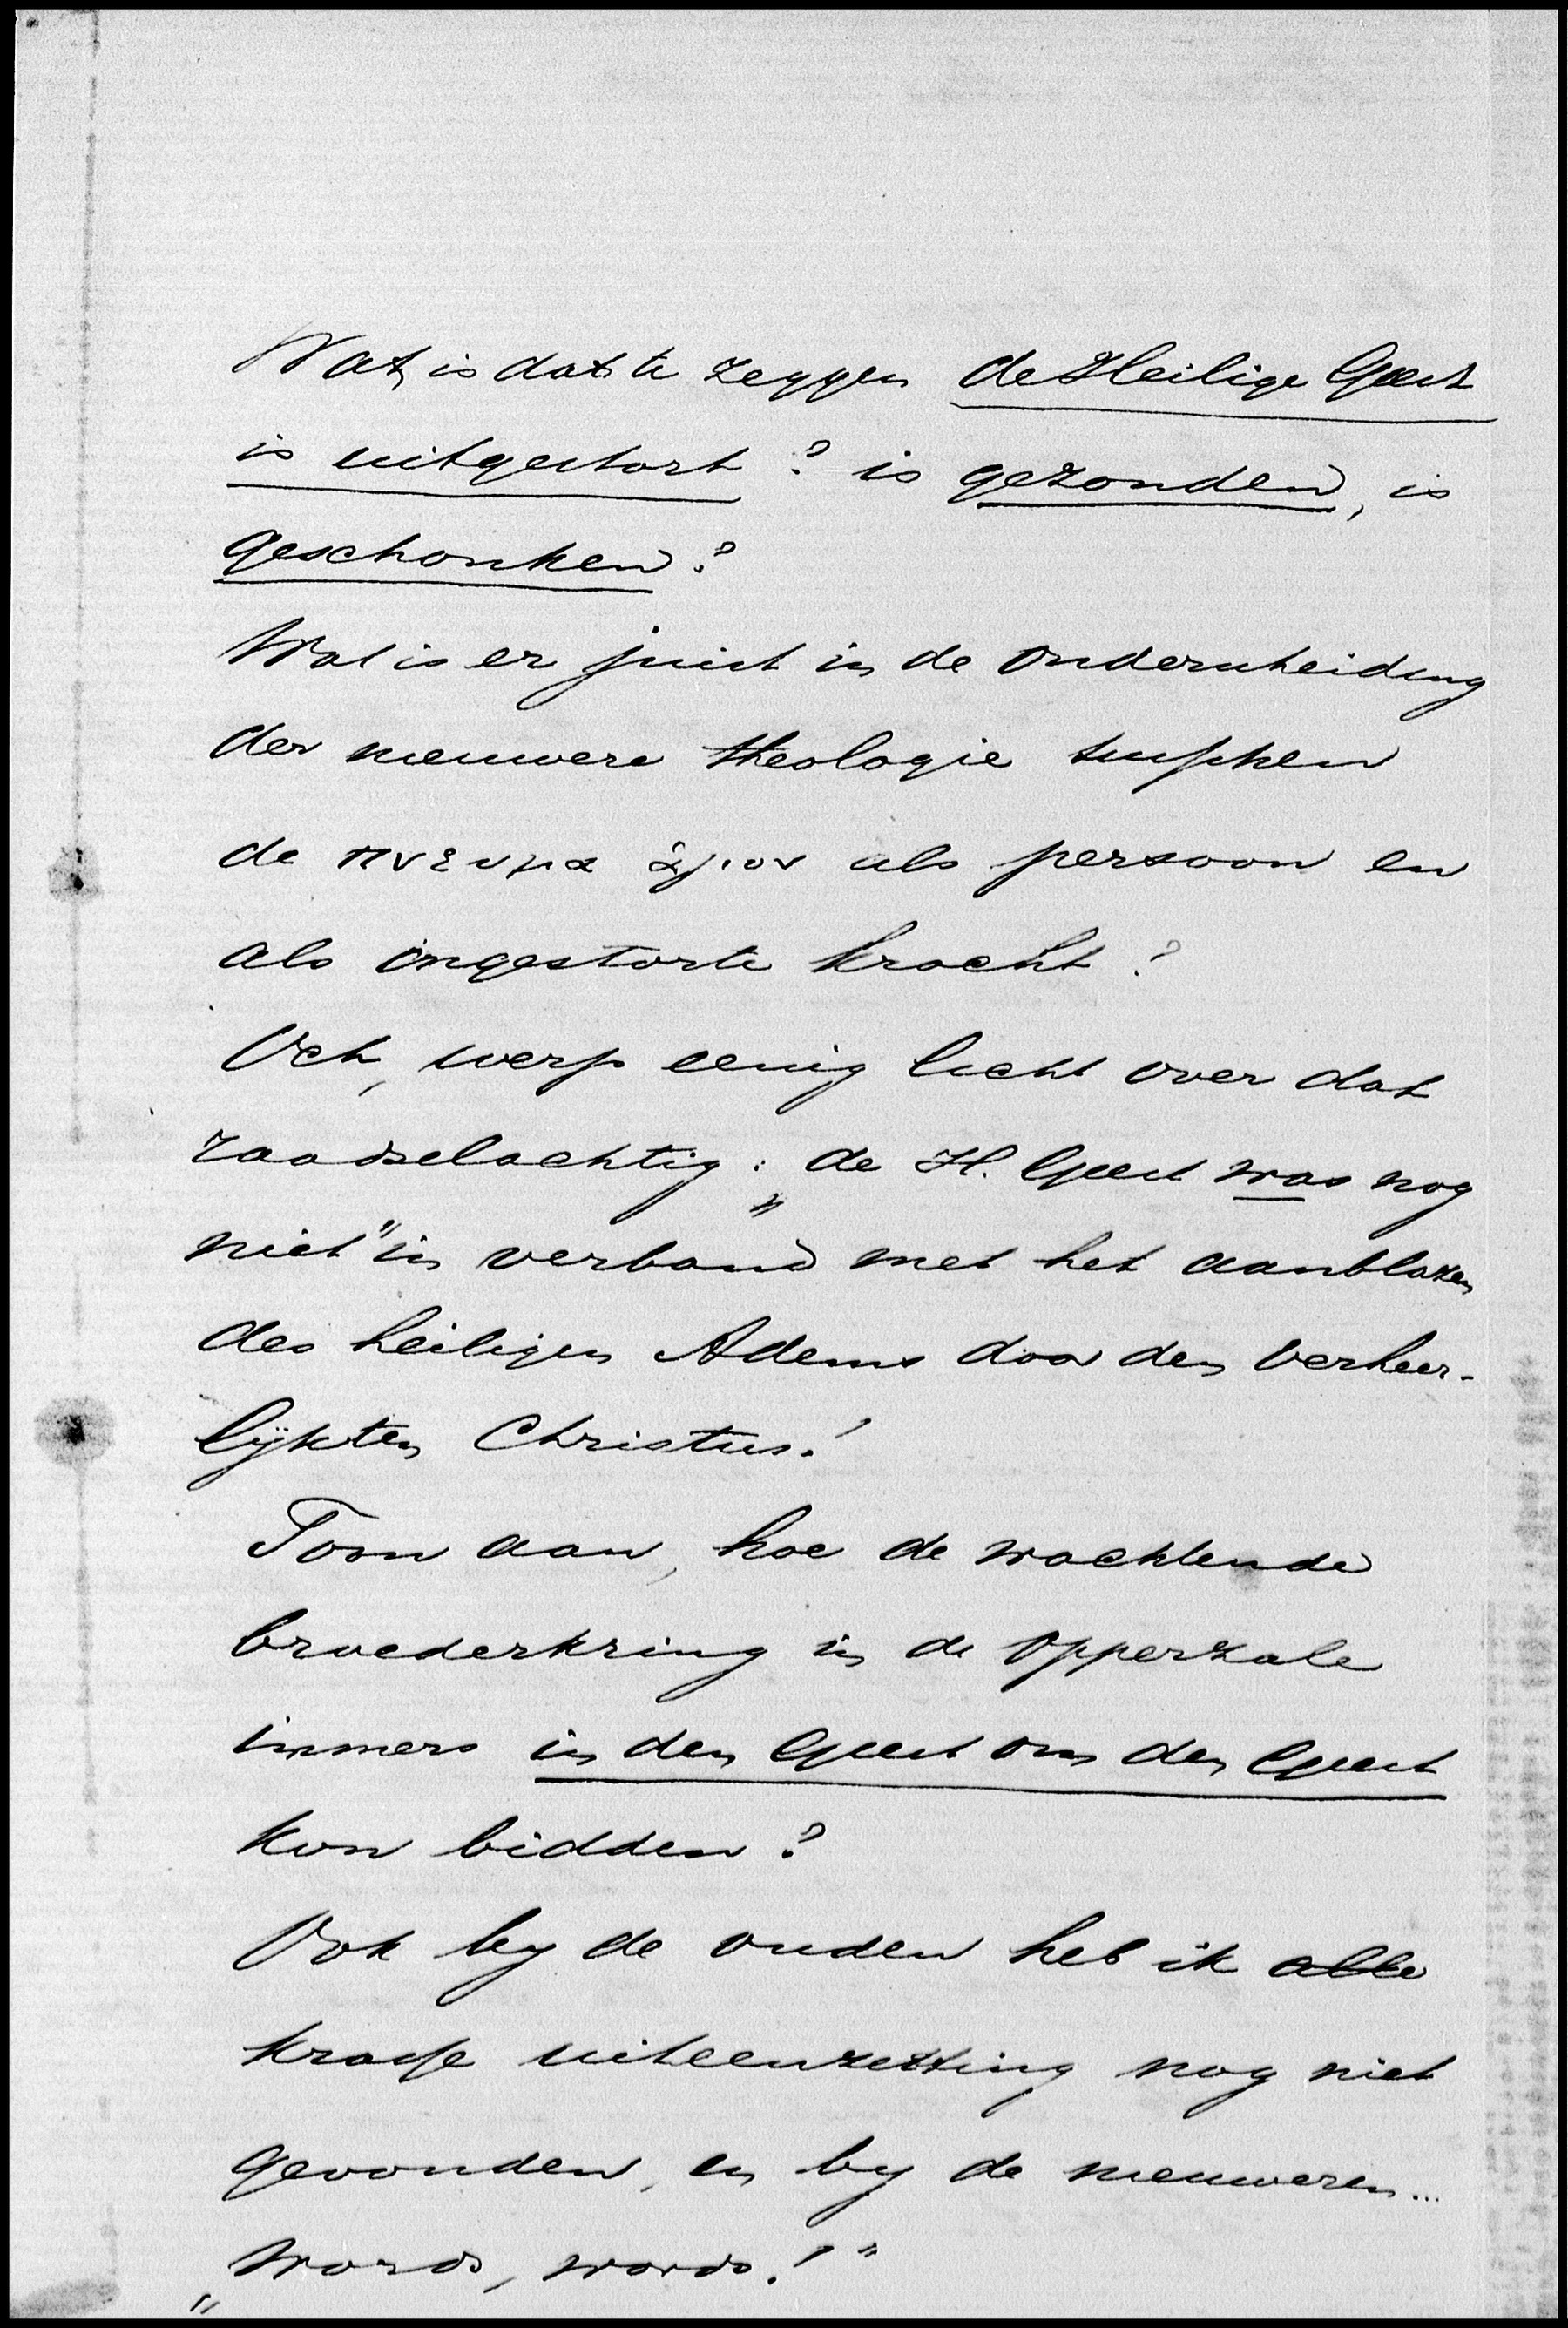 Wat is dat te zeggen de Heilige Geest
is uitgestort? is gezonden, is
geschonken?
Wat is er juist in de onderscheiding
der nieuwere theologie tusschen
de πνευμα ἁγιον als persoon en
als ingestorte kracht?
Och, werp eenig licht over dat
raadselachtig: „de H. Geest was nog
niet" in verband met het aanblazen
des heiligen Adems door den verheer-
lijkten Christus!
Toon aan, hoe de wachtende
broederkring in de opperzale
immers in den Geest om den Geest
kon bidden?
Ook by de ouden heb ik alle
krasse uiteenzetting nog niet
gevonden, en by de nieuweren...
„Words, words!"